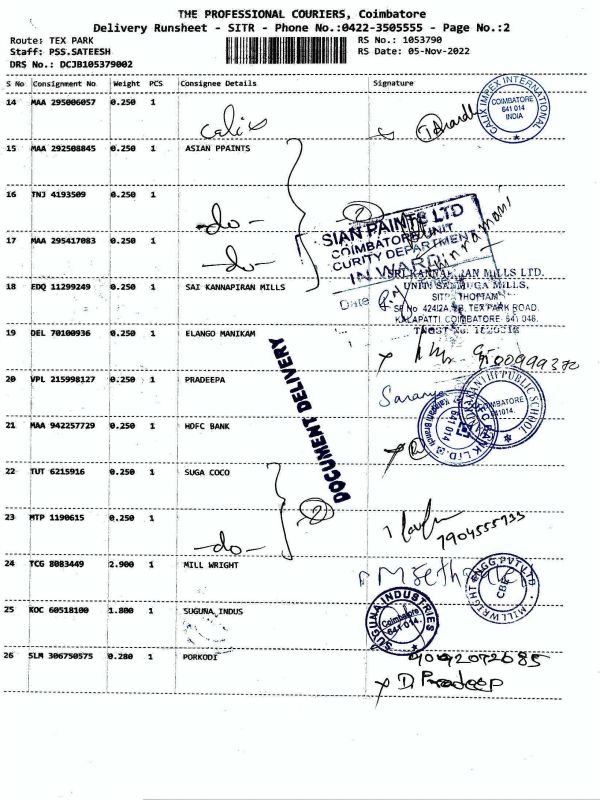 THE PROFESSIONAL COURIERS, Coimbatore
Delivery Runsheet - SITR - Phone No.:0422-3505555 - Page No.:2
Route: TEX PARK RS No.: 1053790
Staff: PSS.SATEESH RS Date: 05-Nov-2022
DRS No.: DCJB105379002
S No Consignment No Weight PCS Consignee Details Signature
14 MAA 295006057 0.250 1
CALIX IMPEX INTERNATIONAL
COIMBATORE
641 014
INDIA
15 MAA 292508845 0.250 1 ASIAN PPAINTS
16 TNJ 4193509 0.250 1
-do-
17 MAA 295417083 0.250 1
-do-
SIAN PAINTS LTD
COIMBATORE UNIT
CURITY DEPARTMENT
INWARD
Date
18 EDQ 11299249 0.250 1 SAI KANNAPIRAN MILLS
MILLS LTD.
MILLS,
TEXPARK ROAD,
KALAPATTI COIMBATORE
19 DEL 70100936 0.250 1 ELANGO MANIKAM
20 VPL 215998127 0.250 1 PRADEEPA
Saranya
PUBLIC SCHOOL
COIMBATORE
641014.
DOCUMENT DELIVERY
21 MAA 942257729 0.250 1 HDFC BANK
641 014
22 TUT 6215916 0.250 1 SUGA COCO
2
23 MTP 1190615 0.250 1
-do-
7904555733
24 TCG 8083449 2.900 1 MILL WRIGHT
MILLWRIGHT ENGG. PVT LTD
CBE
25 KOC 60518100 1.800 1 SUGUNA INDUS
SUGUNA INDUSTRIES
Coimbatore
641 014.
26 SLM 306750575 0.280 1 PORKODI
D. Pradeep